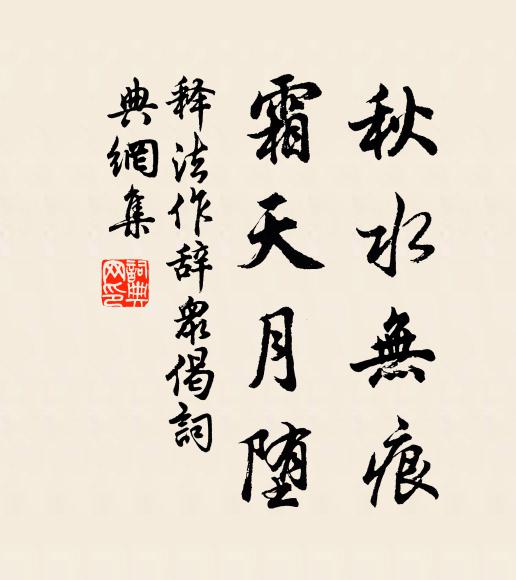 秋水無痕
霜天月堕
释法作辞衆偈詞
典網集
詞典
网印